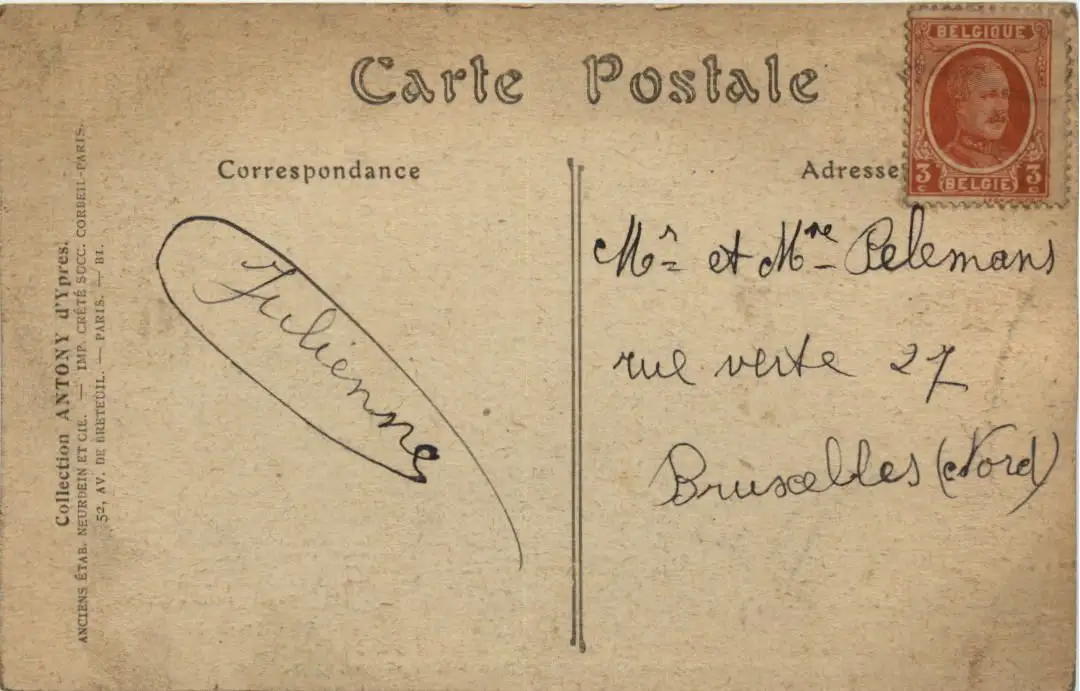 Carte Postale
BELGIQUE
3 c 3 c
BELGIË
Correspondance
Adresse
Julienne
Mr et Mme Pelemans
rue verte 27
Bruxelles (Nord)
Collection ANTONY d'Ypres.
ANCIENS ÉTAB. NEURDEIN ET CIE. — IMP. CRÉTÉ SUCC. CORBEIL-PARIS.
52, AV. DE BRETEUIL. — PARIS. — B1.